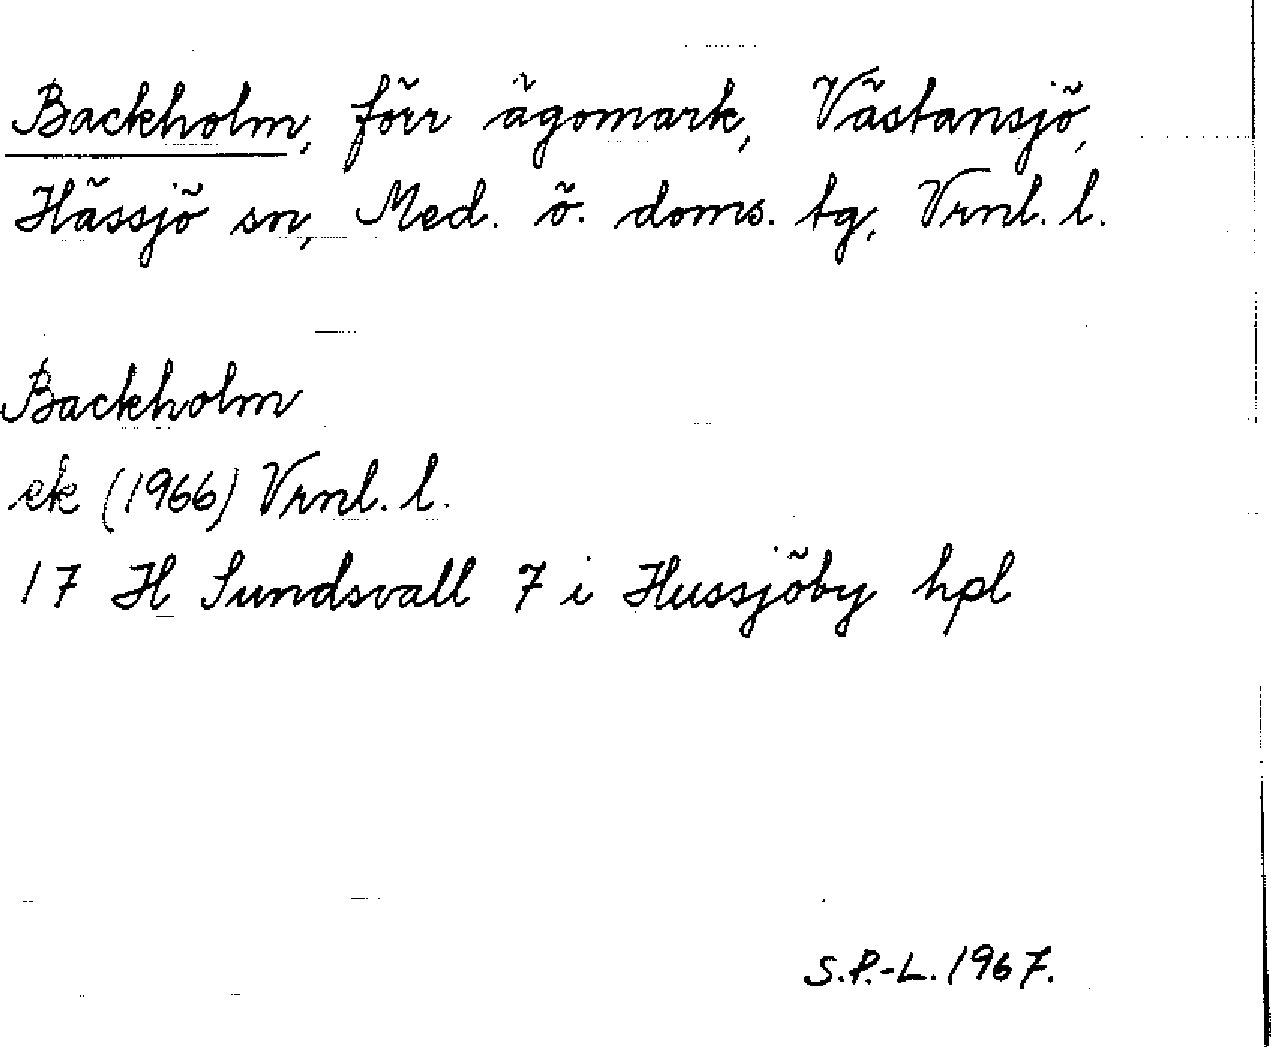 Backholm, förr ägomark, Västansjö,
Hässjö sn, Med. ö. doms. tg, Vrnl. l.
Backholm
ek (1966) Vrnl. l.
17 H Sundsvall 7 i Hussjöby hpl
S.P.-L. 1967.